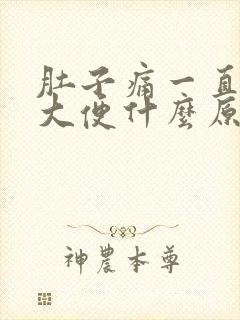 肚子痛一直
大便什麼原
神農本尊